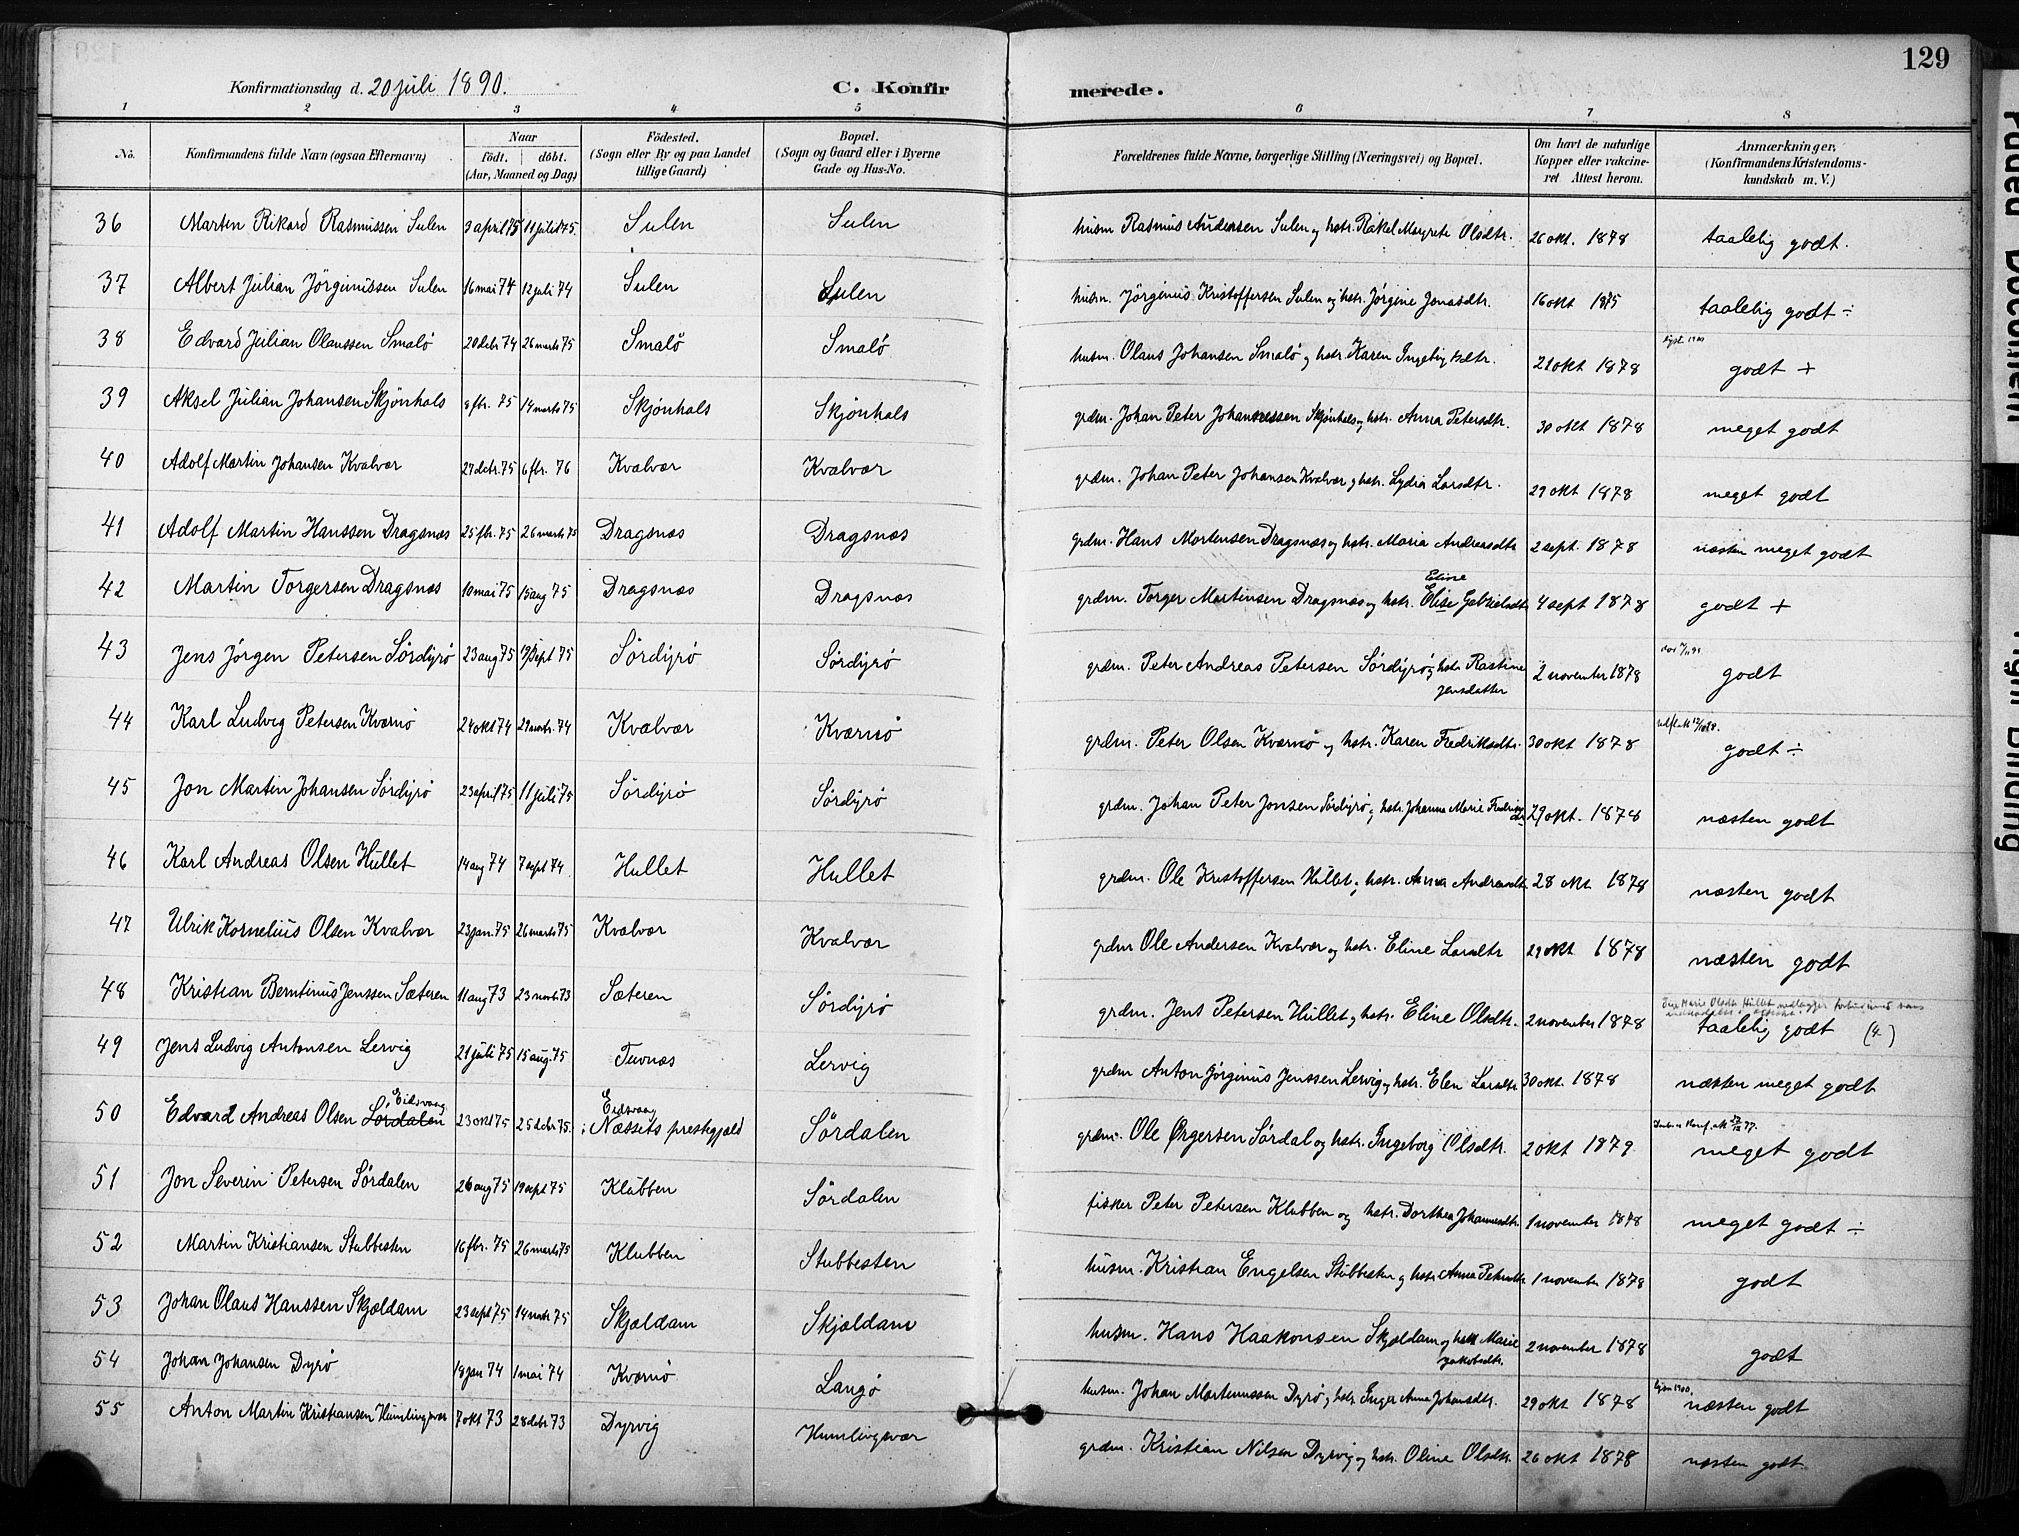 129
Konfirmationsdag d. 20 juli 1890. C. Konfirmerede.
1 2 3 4 5 6 7 8
No. Konfirmandens fulde Navn (ogsaa Efternavn) Naar födt. döbt. (Aar, Maaned og Dag) Födested. (Sogn eller By og paa Landet tillige Gaard) Bopæl. (Sogn og Gaard eller i Byerne Gade og Hus-No. Forældrenes fulde Navne, borgerlige Stilling (Næringsvei) og Bopæl. Om havt de naturlige Kopper eller vakcineret Attest herom. Anmærkninger, (Konfirmandens Kristendomskundskab m. V.)
36 Martin Rikard Rasmussen Sulen 3 april 75 11 juli 75. Sulen Sulen husm Rasmus Andersen Sulen og hstr. Rakel Margrete Olsdtr. 26 okt. 1878 taalelig godt.
37 Albert Julian Jörginussen Sulen 16 mai 74 12 juli 74 Sulen Sulen husm. Jörginus Kristoffersen Sulen og hstr. Jörgine Jonasdtr. 16 okt 1875 taalelig godt ÷
38 Edvard Julian Olaussen Smalö 20 dcbr 74 26 marts 75 Smalö Smalö husm. Olaus Johansen Smalö og hstr. Karen 21 okt 1878 godt +
39 Aksel Julian Johansen Skjönhals 8 fbr. 75 14 marts 75 Skjönhals Skjönhals grdm. Johan Peter Johannessen Skjönhals og hstr. Anna Petersdtr. 30 okt 1878 meget godt
40 Adolf Martin Johansen Kvalvær 27 dcbr. 75 6 fbr. 76 Kvalvær Kvalvær grdm. Johan Peter Johansen Kvalvær og hstr. Lydia Larsdtr. 29 okt 1878 meget godt
41 Adolf Martin Hanssen Dragsnæs 25 fbr. 75 26 marts 75 Dragsnæs Dragsnæs grdm. Hans Mortensen Dragsnæs og hstr. Maria Andreasdtr 2 sept. 1878 næsten meget godt
42 Martin Torgersen Dragsnæs 10 mai 75 15 aug 75 Dragsnæs Dragsnæs grdm. Torger Martinsen Dragsnæs og hstr. Elise Gabrielsdtr 4 sept 1878 godt +
Eline
43 Jens Jörgen Petersen Sördyrö 23 aug 75 19 sept 75 Sördyrö Sördyrö grdm. Peter Andreas Petersen Sördyrö og hstr Rastine Jensdatter 2 november 1878 godt
44 Karl Ludvig Petersen Kværnö 24 okt 74 29 novbr. 74 Kvalvær Kværnö grdm. Peter Olsen Kværnö og hstr. Karen Fredriksdtr. 30 okt 1878 godt ÷
45 Jon Martin Johansen Sördyrö 23 april 75 11 juli 75 Sördyrö Sördyrö grdm. Johan Peter Jonsen Sördyrö og hstr. Johanna Marie 29 okt. 1878 næsten godt
46 Karl Andreas Olsen Hullet 14 aug 74 7 sept 74 Hullet Hullet grdm. Ole Kristoffersen Hullet og hstr. Anna Andreasdtr 28 okt 1878 næsten godt
47 Ulrik Kornelius Olsen Kvalvær 23 jan. 75 26 marts 75 Kvalvær Kvalvær grdm Ole Andersen Kvalvær og hstr. Eline Larsdtr 29 okt 1878 næsten godt
48 Kristian Berntinus Jenssen Sæteren 11 aug 73 23 novb 73 Sæteren Sördyrö grdm. Jens Petersen Hullet og hstr. Eline Olsdtr. 2 november 1878 taalelig godt (4)
49 Jens Ludvig Antonsen Lervig 21 juli 75 15 aug. 75 Tuvnæs Lervig grdm Anton Jörginus Jenssen Lervig og hstr. Elen Larsdtr 30 okt. 1878 næsten meget godt
50 Edvard Andreas Olsen Sördalen Eidsvaag 23 okt 75 25 dcbr 75. Eidsvaag i Næssets prestegjæld Sördalen grdm. Ole Ørgersen Sördal og hstr. Ingeborg Olsdtr. 2 okt 1879 meget godt
51 Jon Severin Petersen Sördalen 26 aug 75 19 sept 75 Klubben Sördalen fisker Peter Petersen Klubben og hstr. Dorthea Johannesdtr 1 november 1878 meget godt ÷
52 Martin Kristiansen Stubbesten 16 fbr. 75 26 marts 75 Klubben Stubbesten husm. Kristian Engelsen Stubbesten og hstr Anna Petersdtr 1 november 1878 godt
53 Johan Olaus Hanssen Skjældam 23 sept 75 14 novbr 75 Skjældam Skjældam husm. Hans Haakonsen Skjældam og hstr Marie Jakobsdtr. 2 november 1878 godt
54 Johan Johansen Dyrö 18 jan 74 1 mai 74 Kværnö Langö husm. Johan Martinussen Dyrö og hstr Inger Anna Johansdtr. 29 okt 1878 næsten godt
55 Anton Martin Kristiansen Humlingsvær 7 okt 73 28 dcbr 73 Dyrvig Humlingsvær grdm. Kristian Nilsen Dyrvig og hstr. Oline Olsdtr. 26 okt 1878 næsten godt